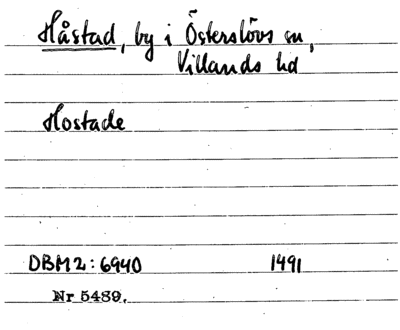 Håstad, by i Österslövs sn,
Villands hd
Hostade
DBM2:6940 1491
Nr 5489.